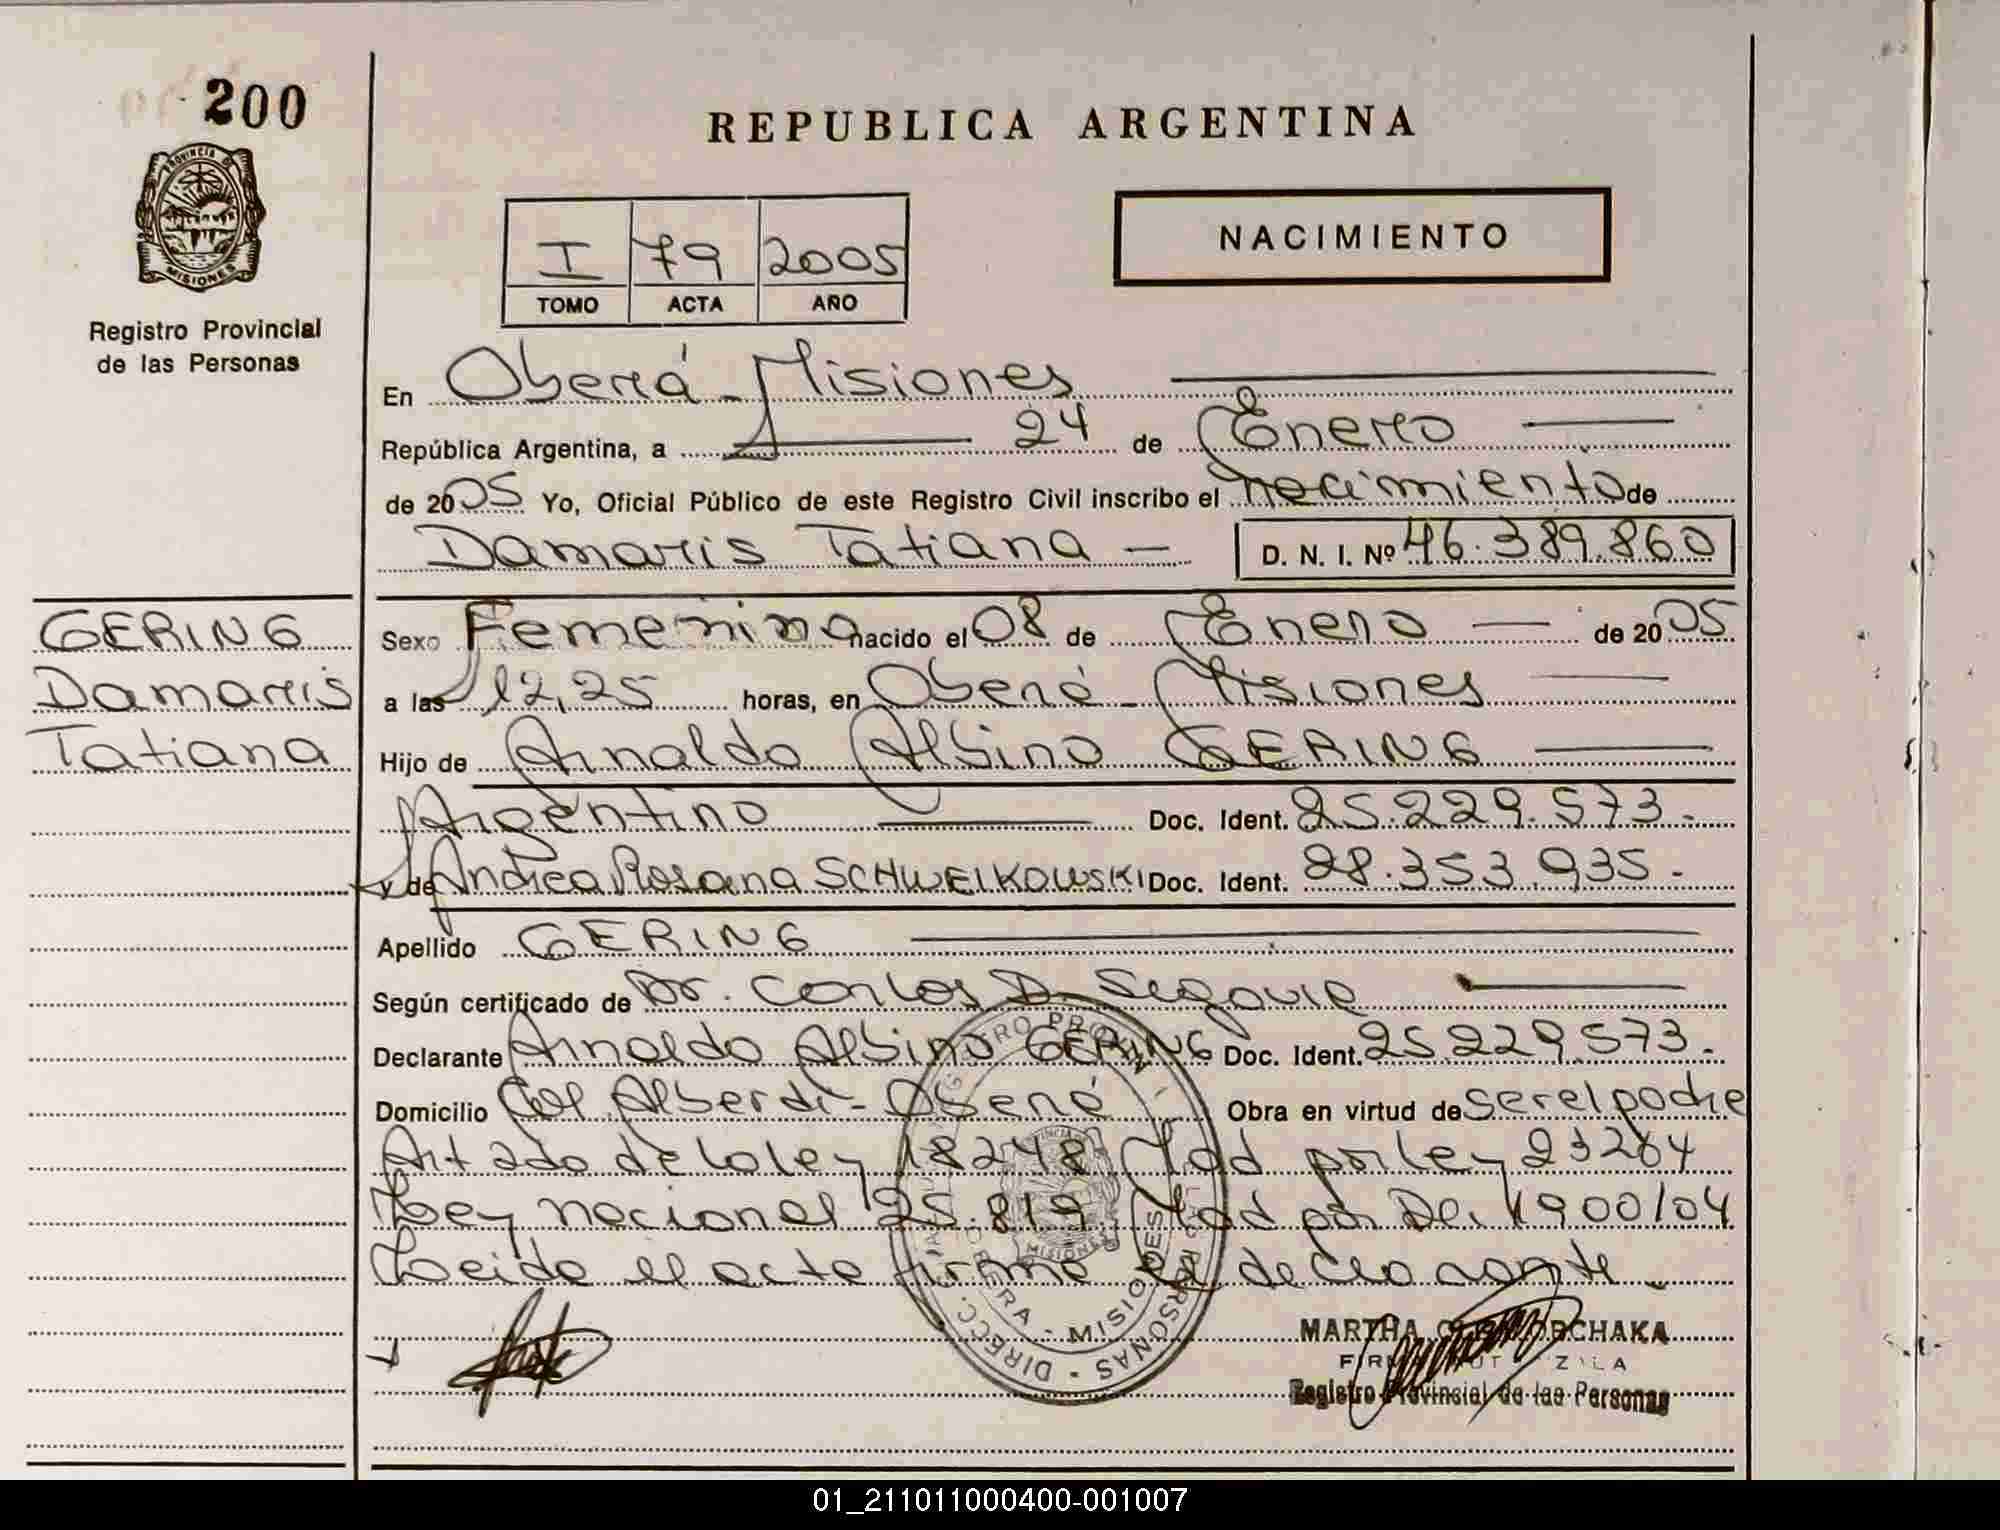 200
PROVINCIA DE
MISIONES
Registro Provincial
de las Personas
REPUBLICA ARGENTINA
I 79 2005
TOMO ACTA AÑO
NACIMIENTO
En Oberá - Misiones
República Argentina, a 24 de Enero
de 2005 Yo, Oficial Público de este Registro Civil inscribo el nacimiento de
Damaris Tatiana D. N. I. Nº 46.389.860
GERING
Damaris
Tatiana
Sexo Femenino nacido el 08 de Enero de 2005
a las 12,25 horas, en Oberá - Misiones
Hijo de Arnaldo Albino GERING
Argentino Doc. Ident. 25.229.573.-
y de Andrea Rosana SCHWEIKOWSKI Doc. Ident. 28.353.935.-
Apellido GERING
Según certificado de Dr. Carlos D. Segovia
Declarante Arnaldo Albino GERING Doc. Ident. 25.229.573.-
Domicilio Col. Alberdi - Oberá Obra en virtud de ser el padre
Art 2do de la ley 18248 Mod por ley 23264
Ley nacional 25.819 Mod por Dec 1900/04
Leida el acta firma el declarante.-
MISIONES
OBERA - MISIONES
DIRECC. PERSONAS
MARTHA
Registro Provincial de las Personas
01_211011000400-001007